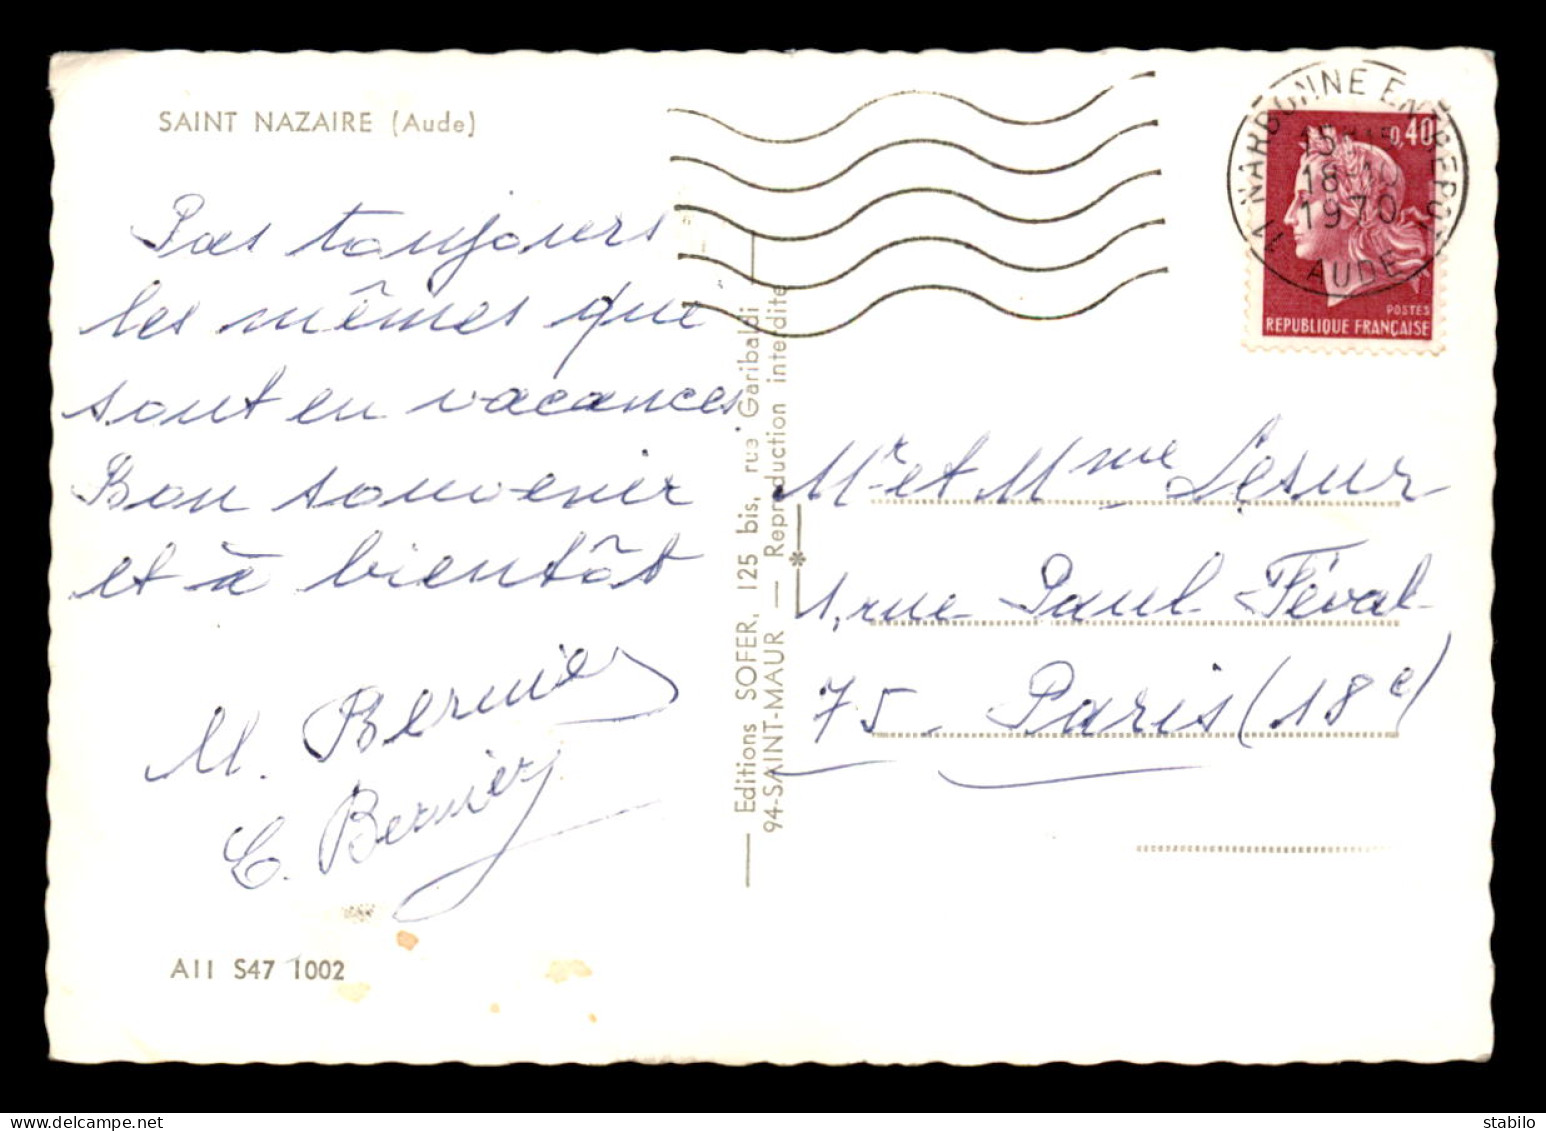 SAINT NAZAIRE (Aude)
Pas toujours
les mêmes que
sont en vacances
Bon souvenir
et à bientôt
M. Bernier
C. Bernier
A11 S47 1002
Editions SOFER, 125 bis, rue Garibaldi
94-SAINT-MAUR — Reproduction interdite
NARBONNE
15
18
1970
AUDE
0,40
POSTES
REPUBLIQUE FRANÇAISE
Mr et Mme Lesur
1, rue Paul Féval
75 - Paris (18e)
delcampe.net
STABILO